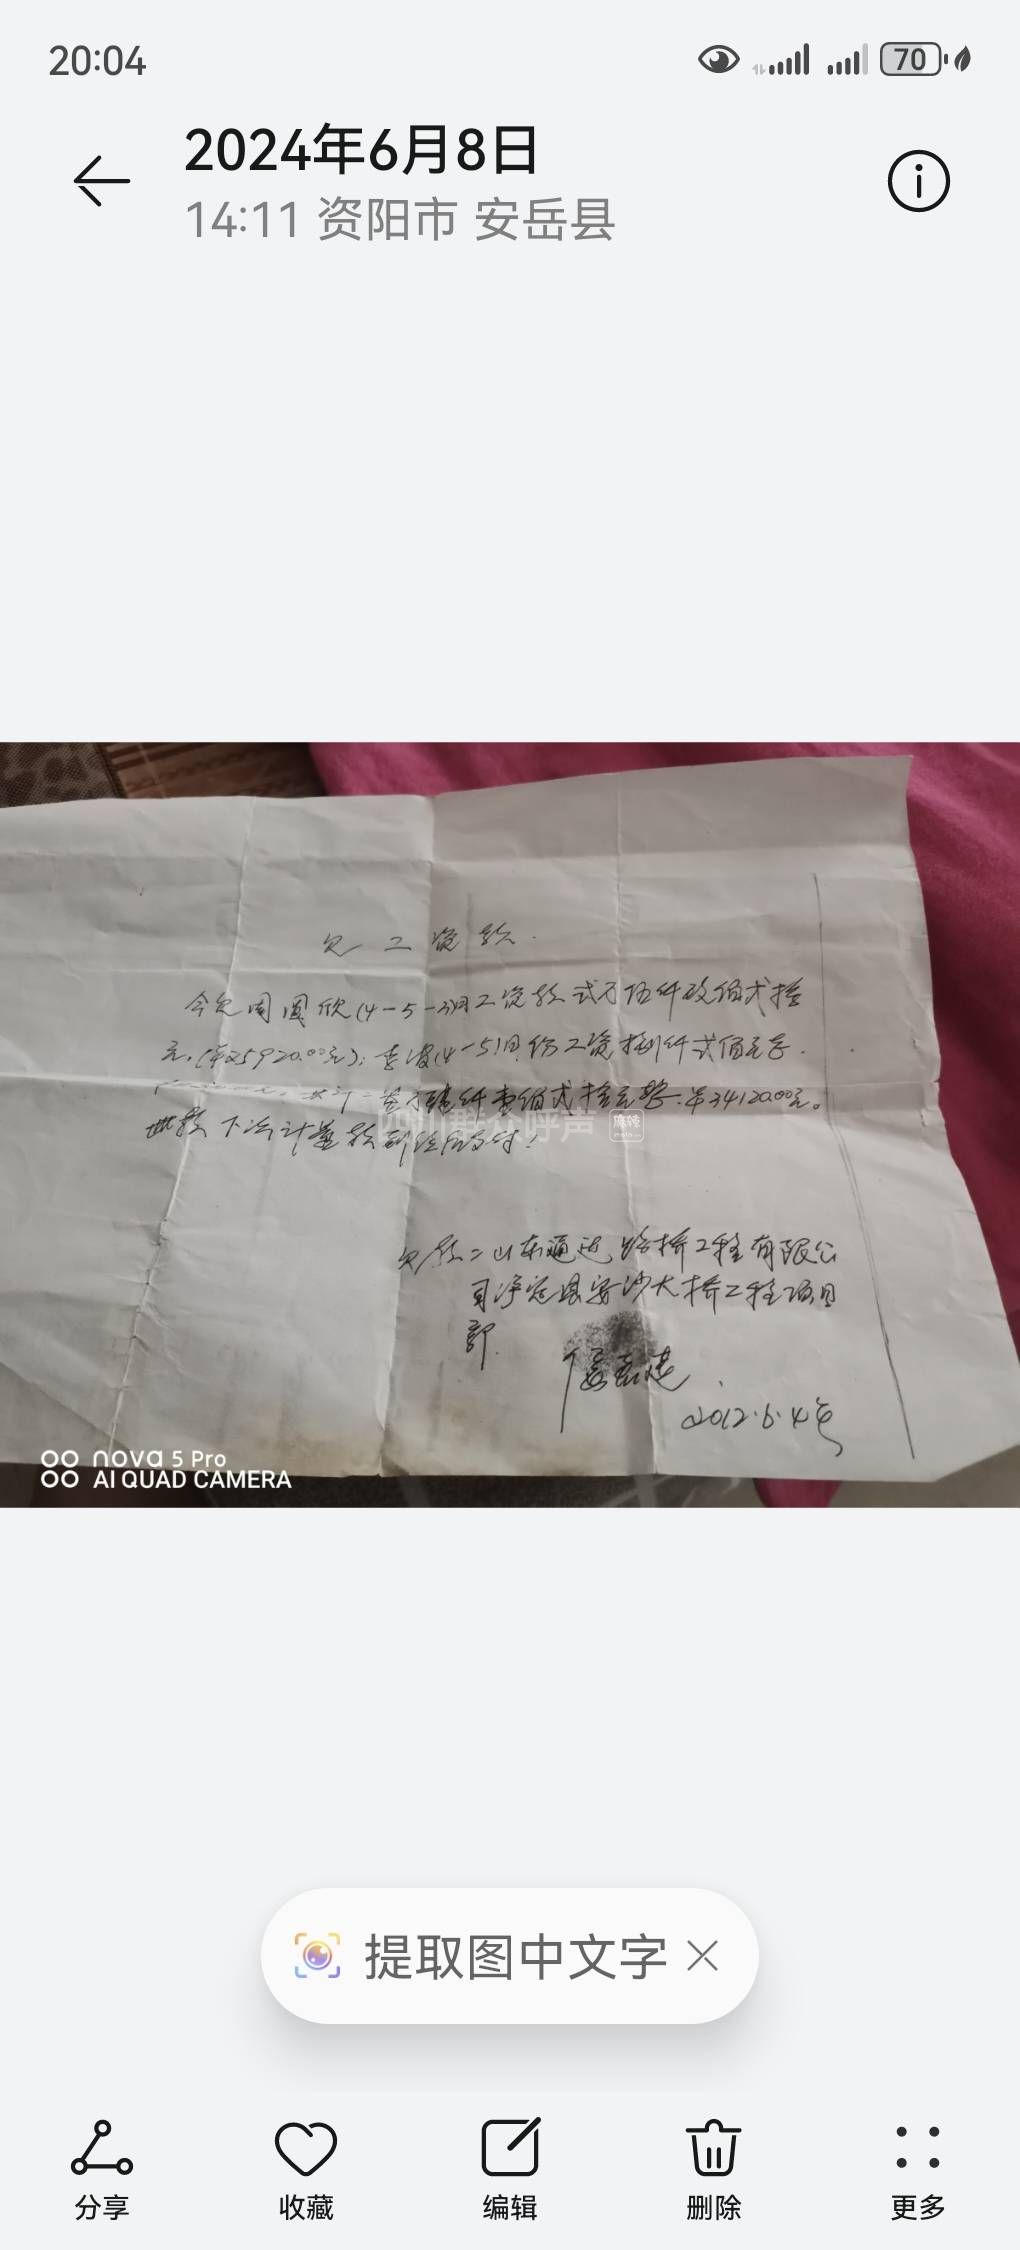 20:04
70
2024年6月8日
14:11 资阳市 安岳县
欠 工资款
今欠周圆欣(4-5-3)月工资款弍万伍仟玖佰弍拾
元.(¥25920.00元);李波(4-5)月份工资捌仟弍佰元
仟壹佰弍拾元整.¥34120.00元。
此款下次计量款到位后支付!
四川群众呼声 麻辣
欠款:山东通达路桥工程有限公
司 县安沙大桥工程项目
部.
2012.6.4号
nova 5 Pro
AI QUAD CAMERA
提取图中文字
分享 收藏 编辑 删除 更多